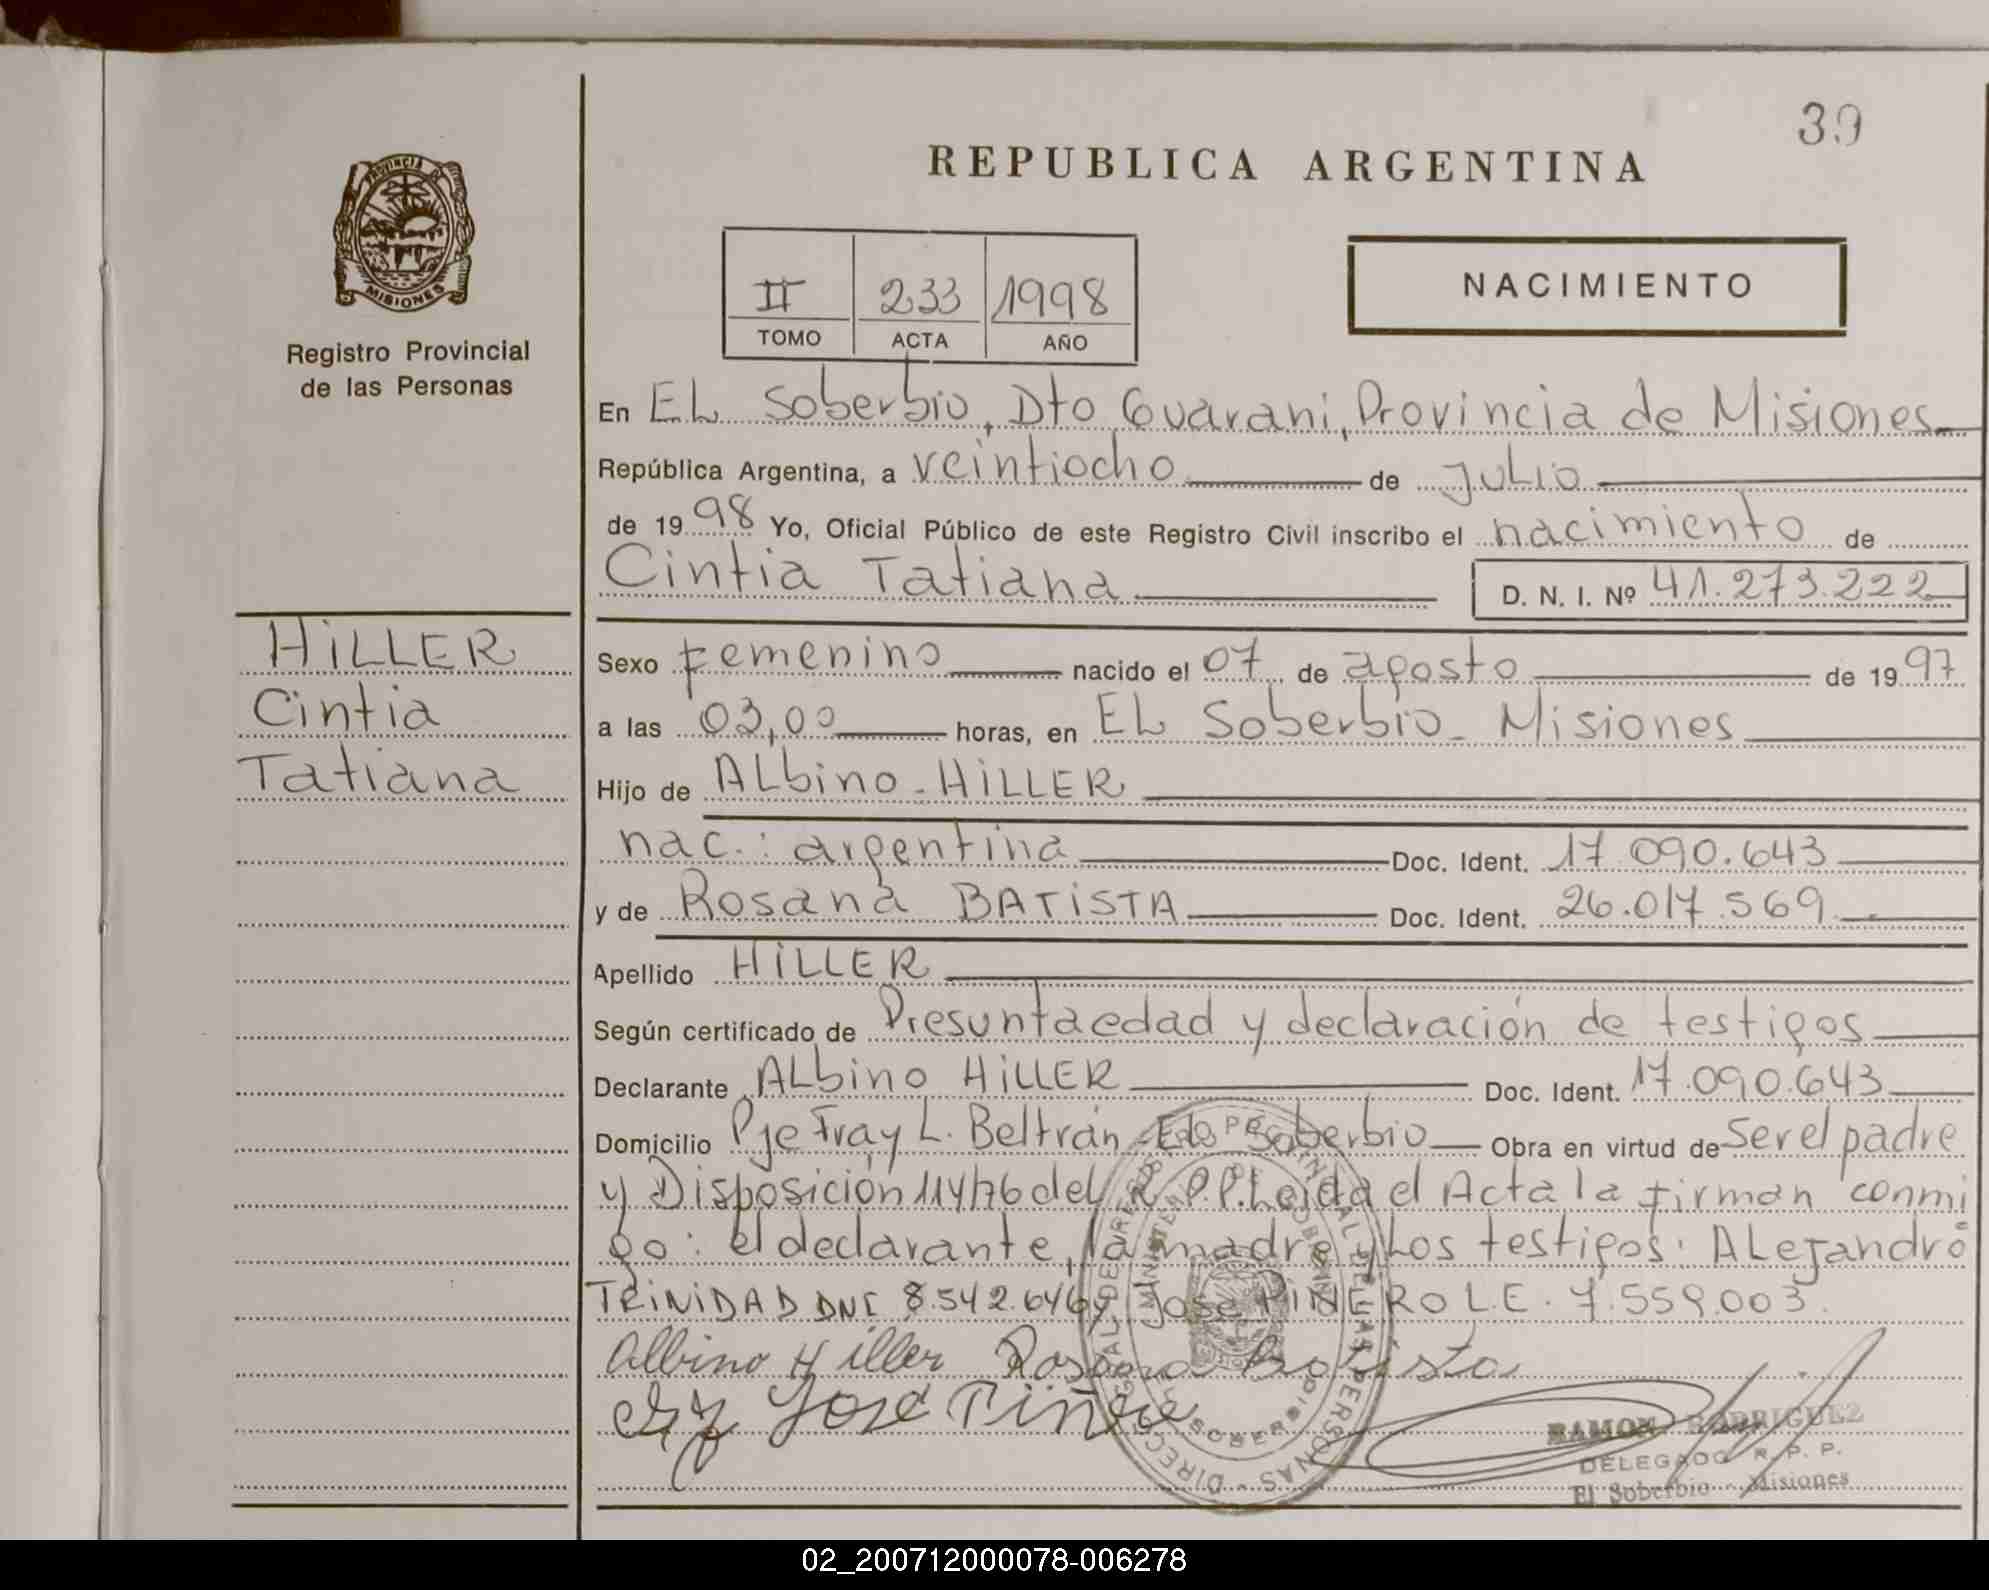 39
REPUBLICA ARGENTINA
PROVINCIA DE
MISIONES
Registro Provincial
de las Personas
II 233 1998
TOMO ACTA AÑO
NACIMIENTO
En EL Soberbio, Dto Guarani, Provincia de Misiones
República Argentina, a veintiocho de Julio
de 1998 Yo, Oficial Público de este Registro Civil inscribo el nacimiento de
Cintia Tatiana D. N. I. Nº 41.273.222
HiLLER
Cintia
Tatiana
Sexo femenino nacido el 07 de agosto de 1997
a las 03,00 horas, en EL Soberbio - Misiones
Hijo de ALbino - HiLLER
nac.: argentina Doc. Ident. 17.090.643
y de Rosana BATiSTA Doc. Ident. 26.017.569
Apellido HiLLER
Según certificado de Presuntaedad y declaración de testigos
Declarante ALbino HiLLER Doc. Ident. 17.090.643
Domicilio Pje Fray L. Beltrán - El Soberbio Obra en virtud de Ser el padre
y Disposición 114/76 del R.P.P. Leida el Acta la firman conmi
go: el declarante, la madre y Los testigos: ALejandro
TRiNiDAD DNI 8.542.646 y José PIÑERO L.E. 7.559.003.
Albino Hiller Rosana Batista
José Piñero
DIRECCION GRAL DE REGISTRO PROVINCIAL DE LAS PERSONAS
MINISTERIO DE GOBIERNO
EL SOBERBIO
RAMON RODRIGUEZ
DELEGADO R. P. P.
El Soberbio - Misiones
02_200712000078-006278